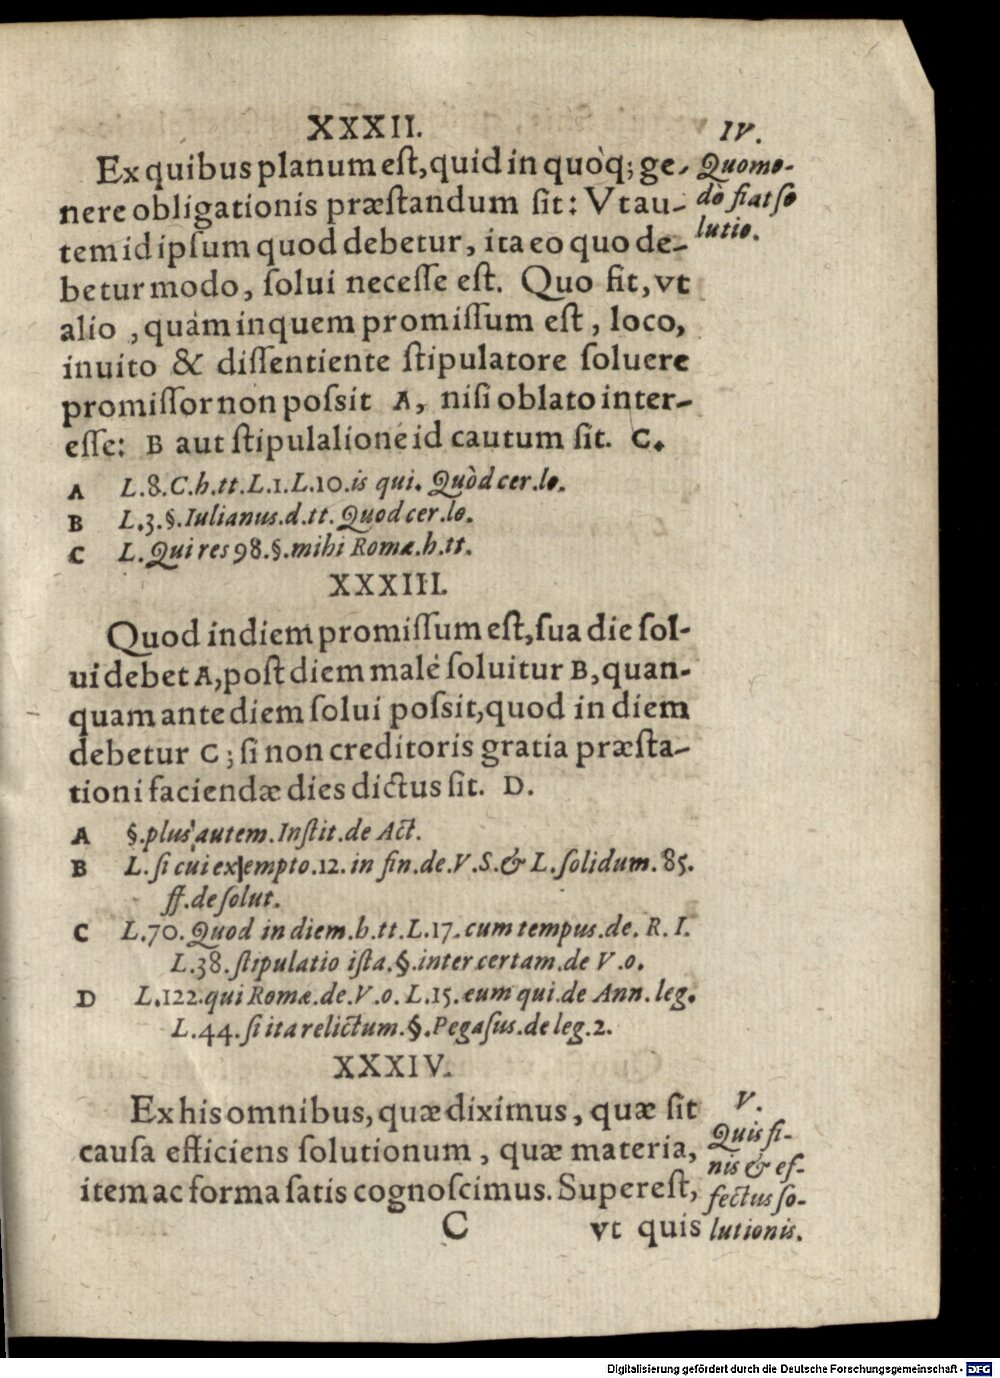 XXXII.
Ex quibus planum est, quid in quoq; ge-
nere obligationis præstandum sit: Vt au-
tem id ipsum quod debetur, ita eo quo de-
betur modo, solui necesse est. Quo fit, vt
alio, quàm in quem promissum est, loco,
inuito & dissentiente stipulatore soluere
promissor non possit A, nisi oblato inter-
esse: B aut stipulalione id cautum sit. C.
IV.
Quomo-
dò fiat so
lutio.
A L.8.C.h.tt.L.1.L.10.is qui. Quòd cer.lo.
B L.3.§.Iulianus.d.tt.Quod cer.lo.
C L.Qui res 98.§.mihi Romæ.h.tt.
XXXIII.
Quod in diem promissum est, sua die sol-
ui debet A, post diem malè soluitur B, quan-
quam ante diem solui possit, quod in diem
debetur C; si non creditoris gratia præsta-
tioni faciendæ dies dictus sit. D.
A §.plus autem.Instit.de Act.
B L.si cui ex empto.12.in fin.de.V.S.& L.solidum.85.
ff.de solut.
C L.70.Quod in diem.h.tt.L.17.cum tempus.de.R.I.
L.38.stipulatio ista.§.inter certam.de V.o.
D L.122.qui Romæ.de.V.o.L.15.eum qui.de Ann.leg.
L.44.si ita relictum.§.Pegasus.de leg.2.
XXXIV.
Ex his omnibus, quæ diximus, quæ sit
causa efficiens solutionum, quæ materia,
item ac forma satis cognoscimus. Superest,
C vt quis
V.
Quis fi-
nis & ef-
fectus so-
lutionis.
Digitalisierung gefördert durch die Deutsche Forschungsgemeinschaft - DFG